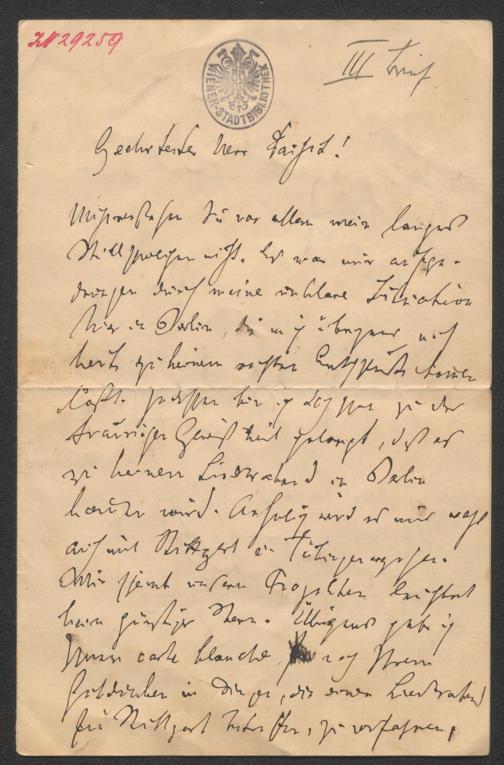 IN 29259
WIENER-STADTBIBLIOTHEK
III Brief
Geehrtester Herr Faißt!
Missverstehen Sie vor allem mein langes
Stillschweigen nicht. Es war mir aufge-
drungen durch meine unklare Situation
hier in Berlin, die mich übrigens noch
heute zu keinem rechten Entschluß kommen
läßt. Indessen bin ich doch zu der
traurigen Gewißheit gelangt, daß es
zu keinem Liederabend in Berlin
kommen wird. Ähnlich wird es mir wohl
auch mit Stuttgart u Tübingen ergehen.
Über unseren Projekten leuchtet
kein günstiger Stern. Übrigens gebe ich
Ihnen carte blanche nach Ihrem
Gutdünken in Dingen, die einen Liederabend
für Stuttgart betreffen, zu verfahren,